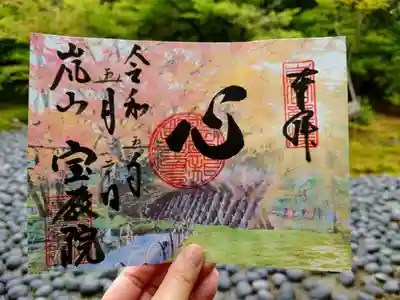 奉拝
心
令和五年
五月 日
嵐山 宝厳院